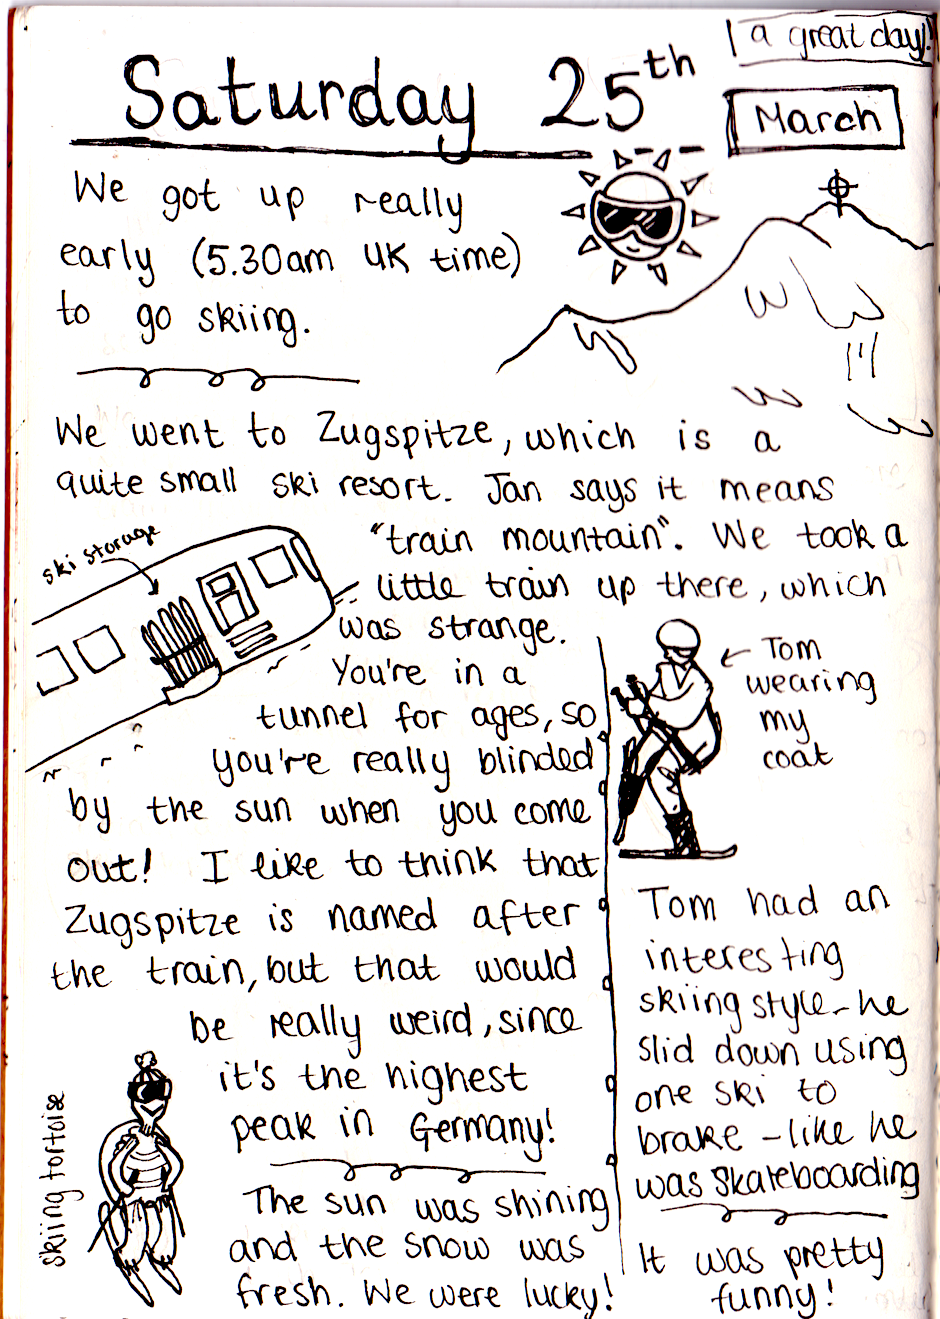 a great day!
Saturday 25th
March
We got up really
early (5.30am UK time)
to go skiing.
We went to Zugspitze, which is a
quite small ski resort. Jan says it means
"train mountain". We took a
little train up there, which
was strange.
You're in a
tunnel for ages, so
you're really blinded
by the sun when you come
out! I like to think that
Zugspitze is named after
the train, but that would
be really weird, since
it's the highest
peak in Germany!
The sun was shining
and the snow was
fresh. We were lucky!
ski storage
skiing tortoise
Tom
wearing
my
coat
Tom had an
interesting
skiing style - he
slid down using
one ski to
brake - like he
was skateboarding
It was pretty
funny!